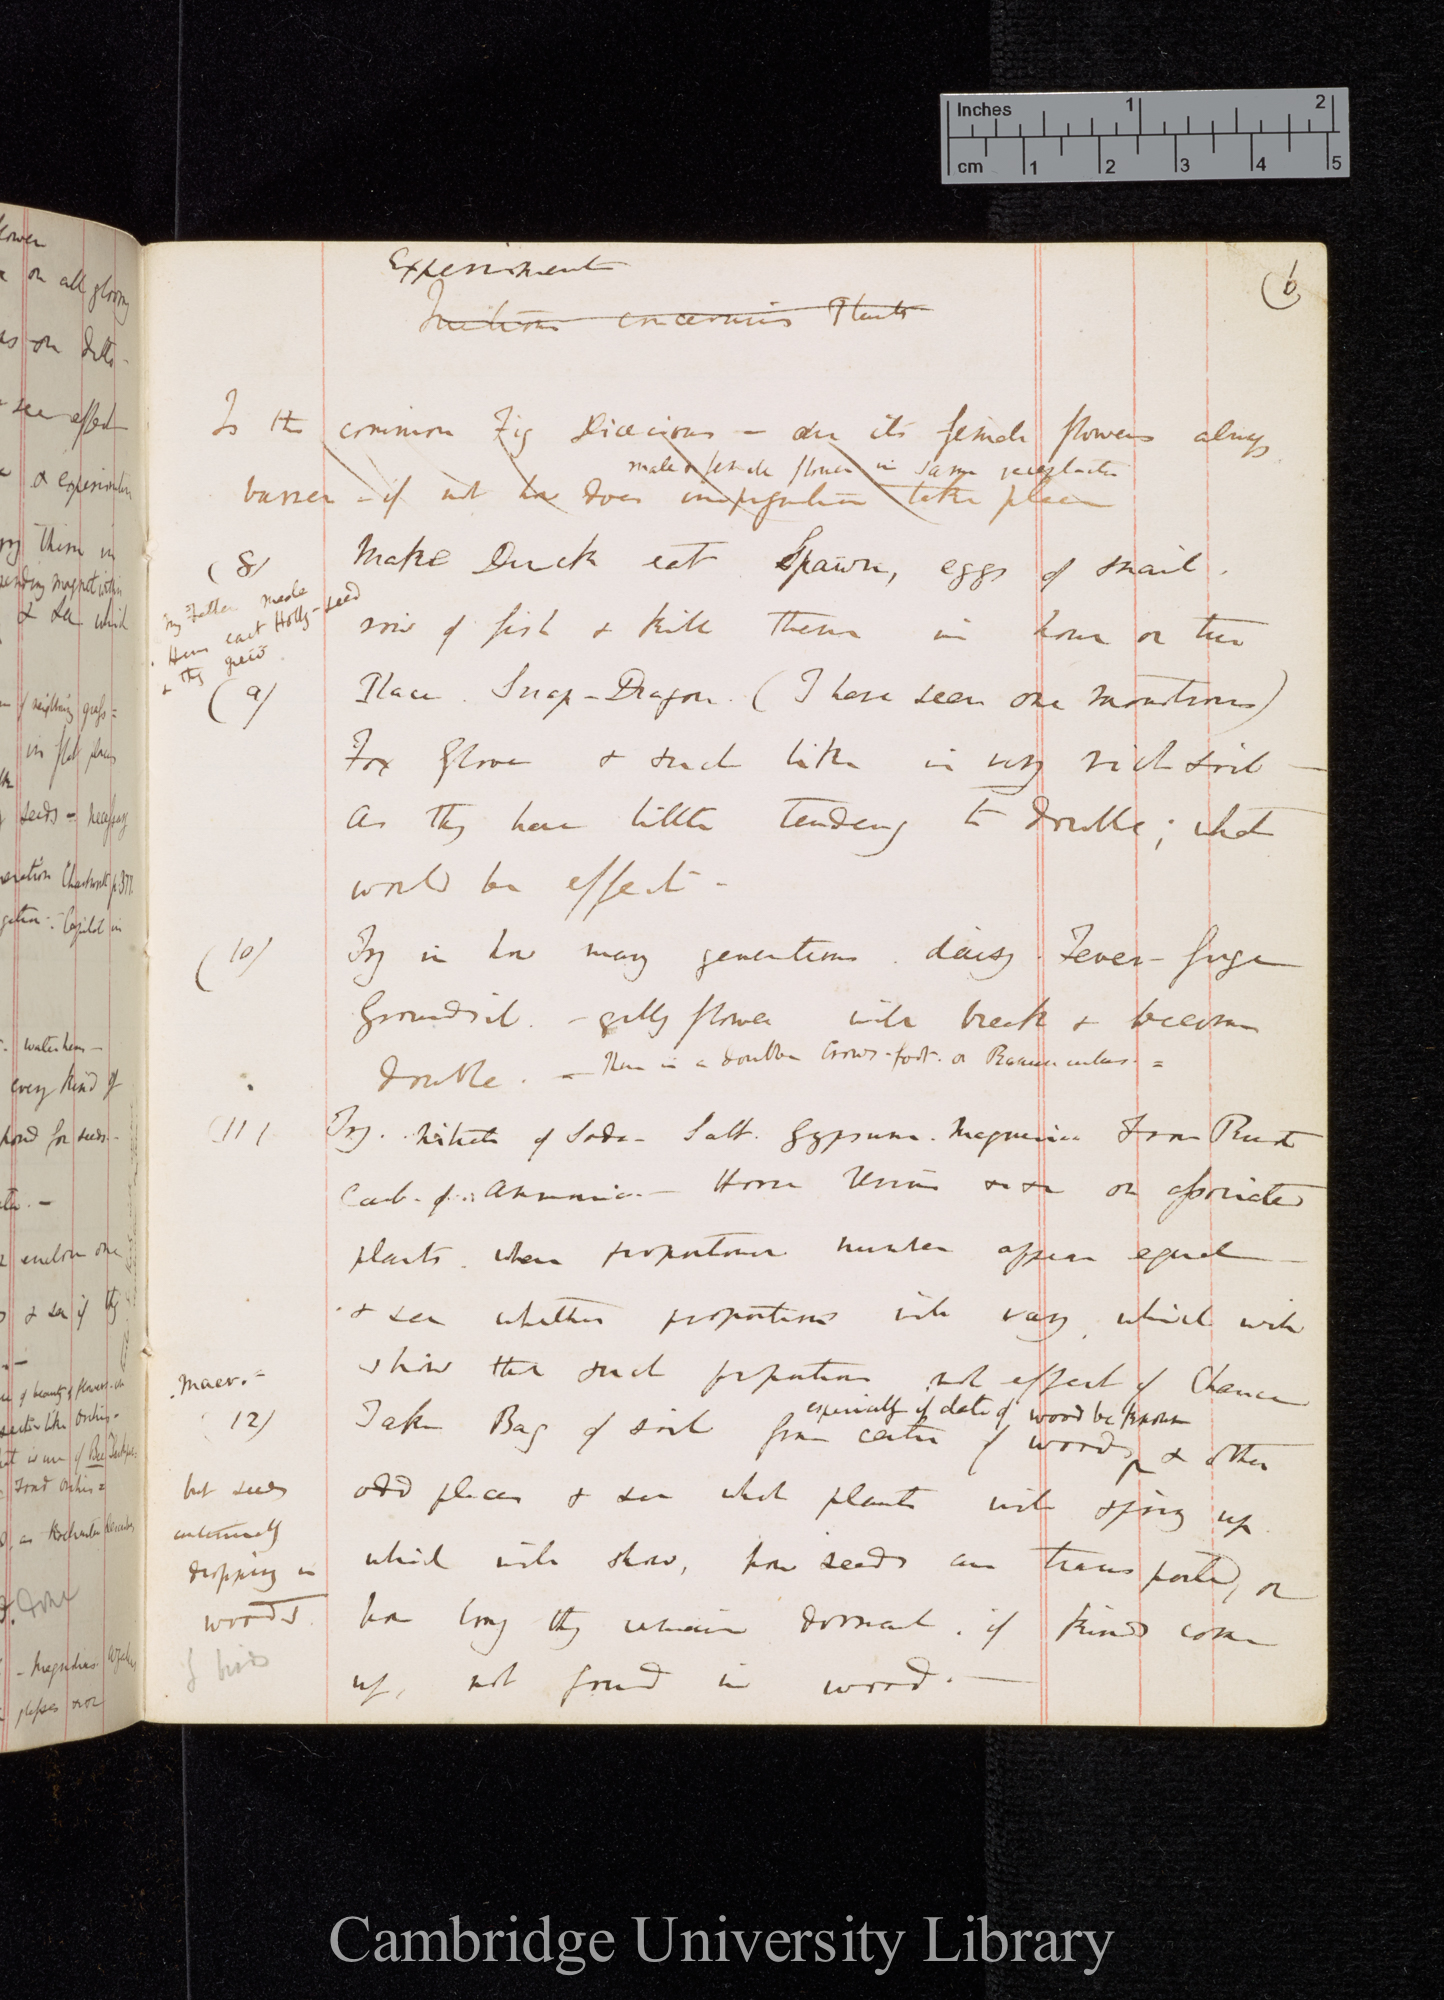 Inches 1 2
cm 1 2 3 4 5
Experiment
(6
Questions concerning Plants
Is the common Fig Dioecious – are its female flowers always
male & female flower in same receptacle
barren – if not how does impregnation take place
(8) Make Duck eat Spawn, eggs of snail.
My Father made
Hens eat Holly-seed
& they grew
row of fish & kill them in hour or two
(9) Place. Snap-Dragon. (I have seen one monstrous)
Fox Glove & such like in very rich soil —
as they have little tendency to double; what
would be effect –
(10) Try in how many generations. daisy. Fever-fuge
Groundsil. – gilly flower will break & become
double. – There is a double Crows-foot. or Ranunculus. =
(11) Try. Nitrate of Soda – Salt. Gypsum. Magnesia Iron Rust
Carb. of. Ammonia. – Horse Urine &c &c on associated
plants. where proportional number appear equal —
& see whether proportions will vary, which will
show that such proportions not effect of Chance
Maer. =
especially if date of wood be known
(12) Take Bag of soil from centre of woods, & other
odd places & see what plants will spring up
which will show, how seeds are transported, or
how long they remain dormant. if kinds come
up, not found in wood. —
but seeds
dropping in
woods.
if birds
flower
on all
on
see effect
& experiment
them in
magnet
& see which
in flat places
seeds –
p. 377
in
every kind of
pond for seeds
enclose one
& see if they
of beauty of flowers
like Orchis
of Bee
done
Cambridge University Library